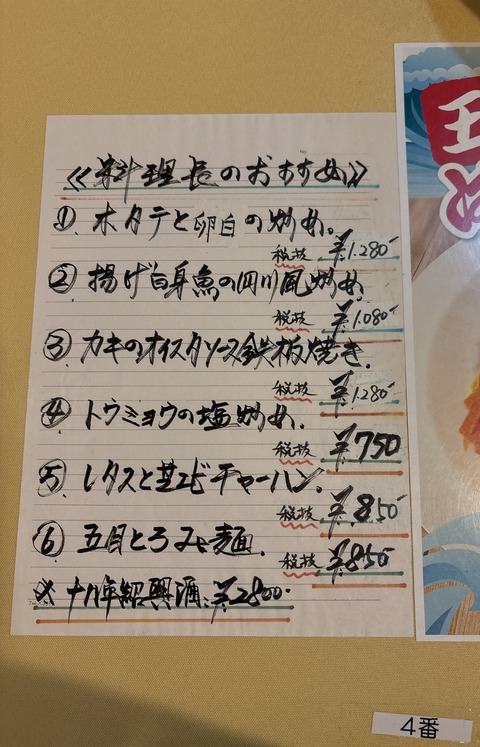 《料理長のおすすめ》
① ホタテと卵白の炒め。
税抜 ¥1.280-
② 揚げ白身魚の四川風炒め
税抜 ¥1.080-
③ カキのオイスタソース鉄板焼き.
税抜 ¥1.280-
④ トウミョウの塩炒め.
税抜 ¥750
⑤ レタスと芝エビチャーハン.
税抜 ¥850-
⑥ 五目とろみ麺.
税抜 ¥850-
※ 十八年紹興酒:¥2800-
王
4番